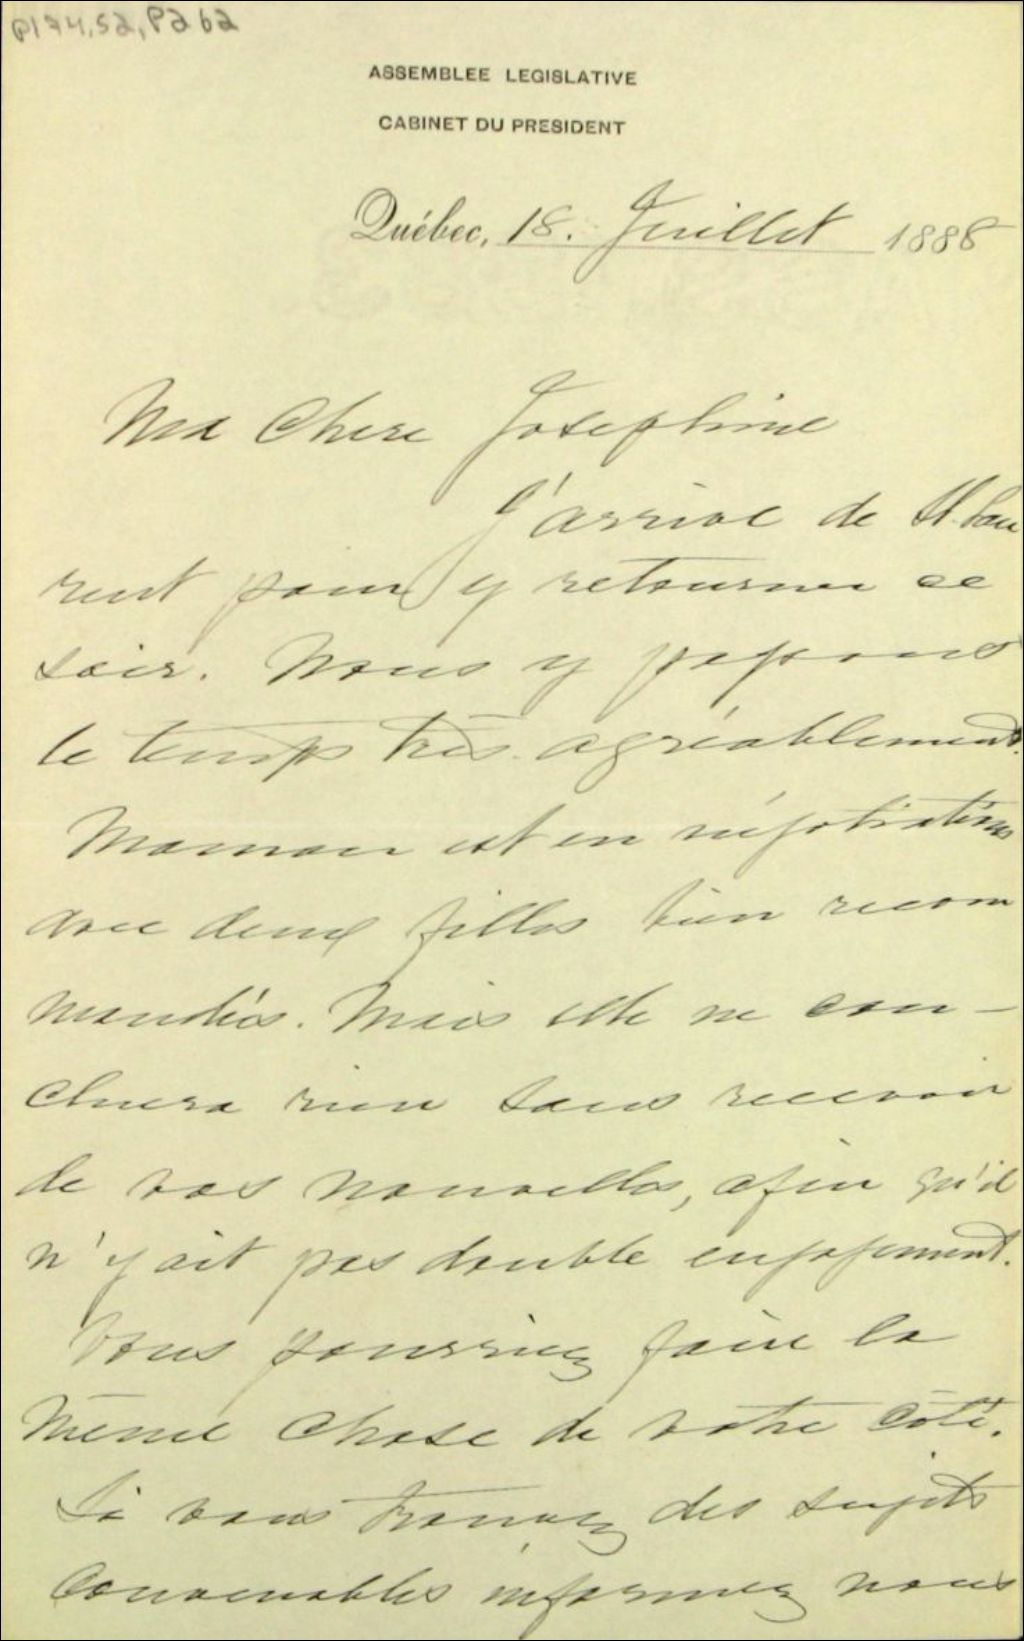 P174,S2,P262
ASSEMBLEE LEGISLATIVE
CABINET DU PRESIDENT
Québec, 18. Juillet 1888
Ma Chere Josephine
J'arrive de St. Lau
rent pour y retourner ce
soir. Nous y passons
le temps très agréablement.
Maman est en négotiations
avec deux filles bien recom
mandées. Mais elle ne con-
cluera rien sans recevoir
de vos nouvelles, afin qu'il
n'y ait pas double engagement.
Vous pourriez faire la
même chose de votre côté.
Si vous trouvez des sujets
convenables informez nous